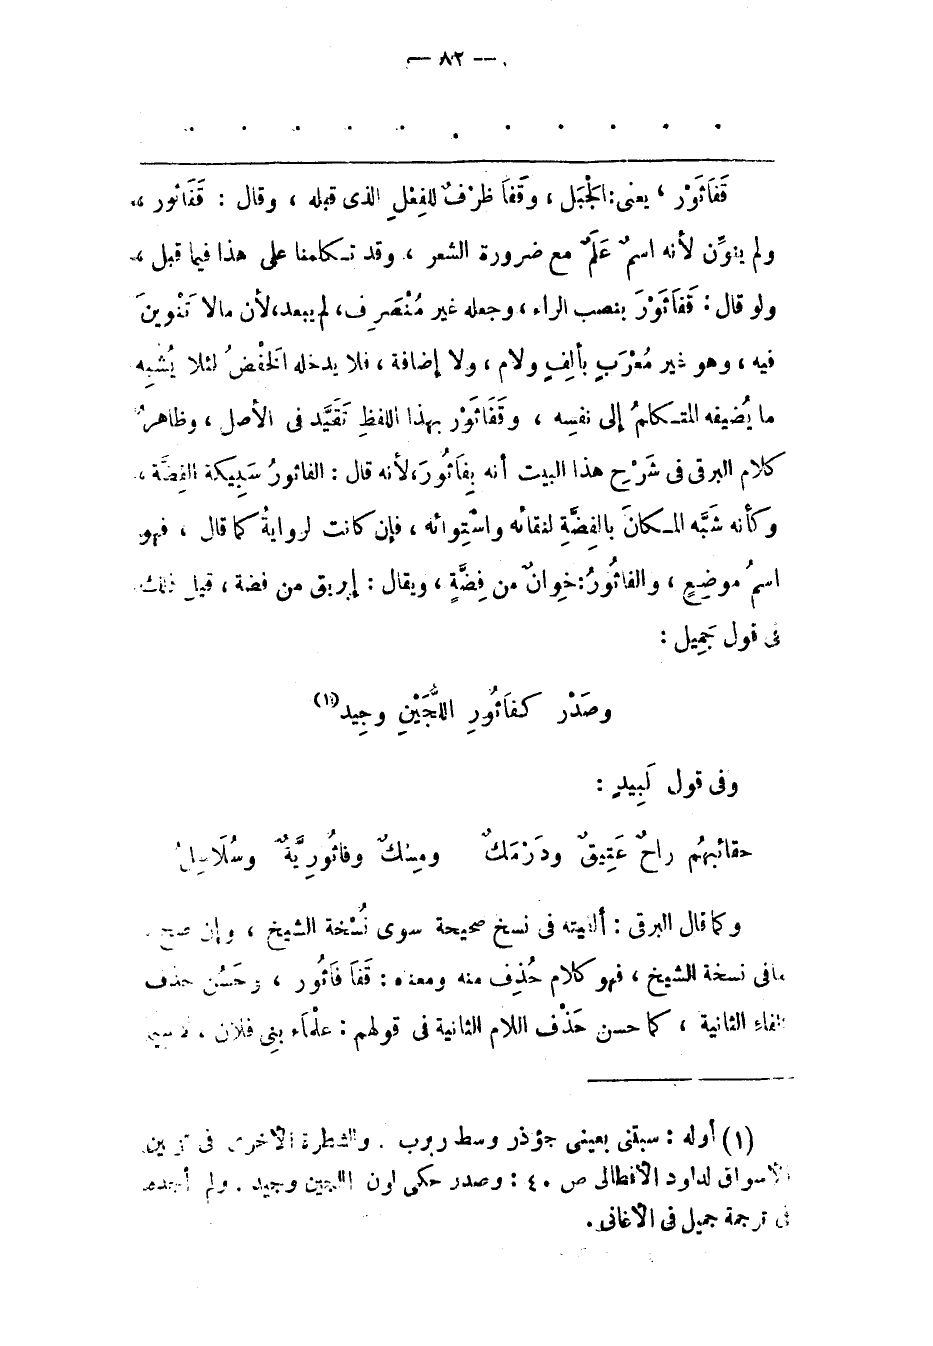 — ٨٢ —
قَفَاثَوْر ، يعنى : الجَبَل ، وقَفَا ظرْفٌ للفِعْلِ الذى قبله ، وقال : قَفَاثور ،
ولم ينوِّن لأنه اسمٌ عَلَمٌ مع ضرورة الشعر ، وقد تكلمنا على هذا فيما قبل ،
ولو قال : قَفَاثَوْرَ بنصب الراء ، وجعله غير مُنْصَرِف ، لم يبعد ، لأن مالا تَنْوينَ
فيه ، وهو غير مُعْرَبٍ بألِفٍ ولام ، ولا إضافة ، فلا يدخله الخَفْضُ لئلا يُشْبِه
ما يُضيفه المتكلمُ إلى نفسِه ، وقَفَاثَوْر بهذا اللفظِ تَقَيَّد فى الأصل ، وظاهرُ
كلام البرقى فى شَرْحِ هذا البيت أنه بِفَاثُورَ ، لأنه قال : الفاثورُ سَبِيكة الفِضَّة ،
وكأنه شَبَّه المكانَ بالفِضَّةِ لنقائه واسْتِوائه ، فإن كانت لرواية كما قال ، فهو
اسمُ موضِعٍ ، والفاثُورُ : خِوانٌ من فِضَّةٍ ، ويقال : إبريق من فضة ، قيل ذلك
فى قول جَمِيل :
وصَدْر كفَاثُورِ اللُّجَيْنِ وجِيد (١)
وفى قول لَبِيدٍ :
حقائبهُم راحٌ عَتِيقٌ ودَرْمَكٌ ومِسْكٌ وفاثُورِيَّةٌ وسُلَاسِلُ
وكما قال البرقى : ألفيته فى نسخ صحيحة سوى نُسْخة الشيخ ، وإن صح
مافى نسخة الشيخ ، فهو كلام حُذِف منه ومعناه : قَفَا فَاثُور ، وحَسُن حذف
الفاءِ الثانية ، كما حسن حَذْف اللام الثانية فى قولهم : علْمَاء بنِى فلان ، لا سيما
(١) أوله : سبتنى بعينى جؤذر وسط ربرب . والشطرة الأخرى فى تزيين
الأسواق لداود الأنطاكى ص ٤٠ : وصدر حكى لون اللجين وجيد . ولم أجده
فى ترجمة جميل فى الأغانى .